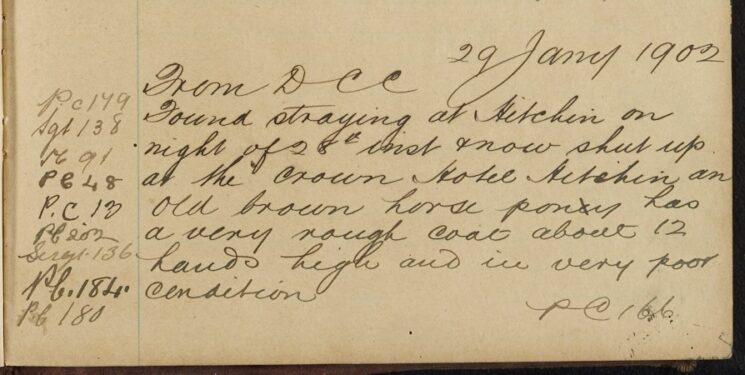 29 Jany 1902
From D C C
P.c 179
Found straying at Hitchin on
Sgt 138
night of 28th inst & now shut up
Pc 91
at the Crown Hotel Hitchin an
Pc 48
old brown horse pony has
P.C. 12
a very rough coat about 12
Pc 202
hands high and in very poor
Sergt. 136
condition
Pc. 184.
Pc 180
P C 166